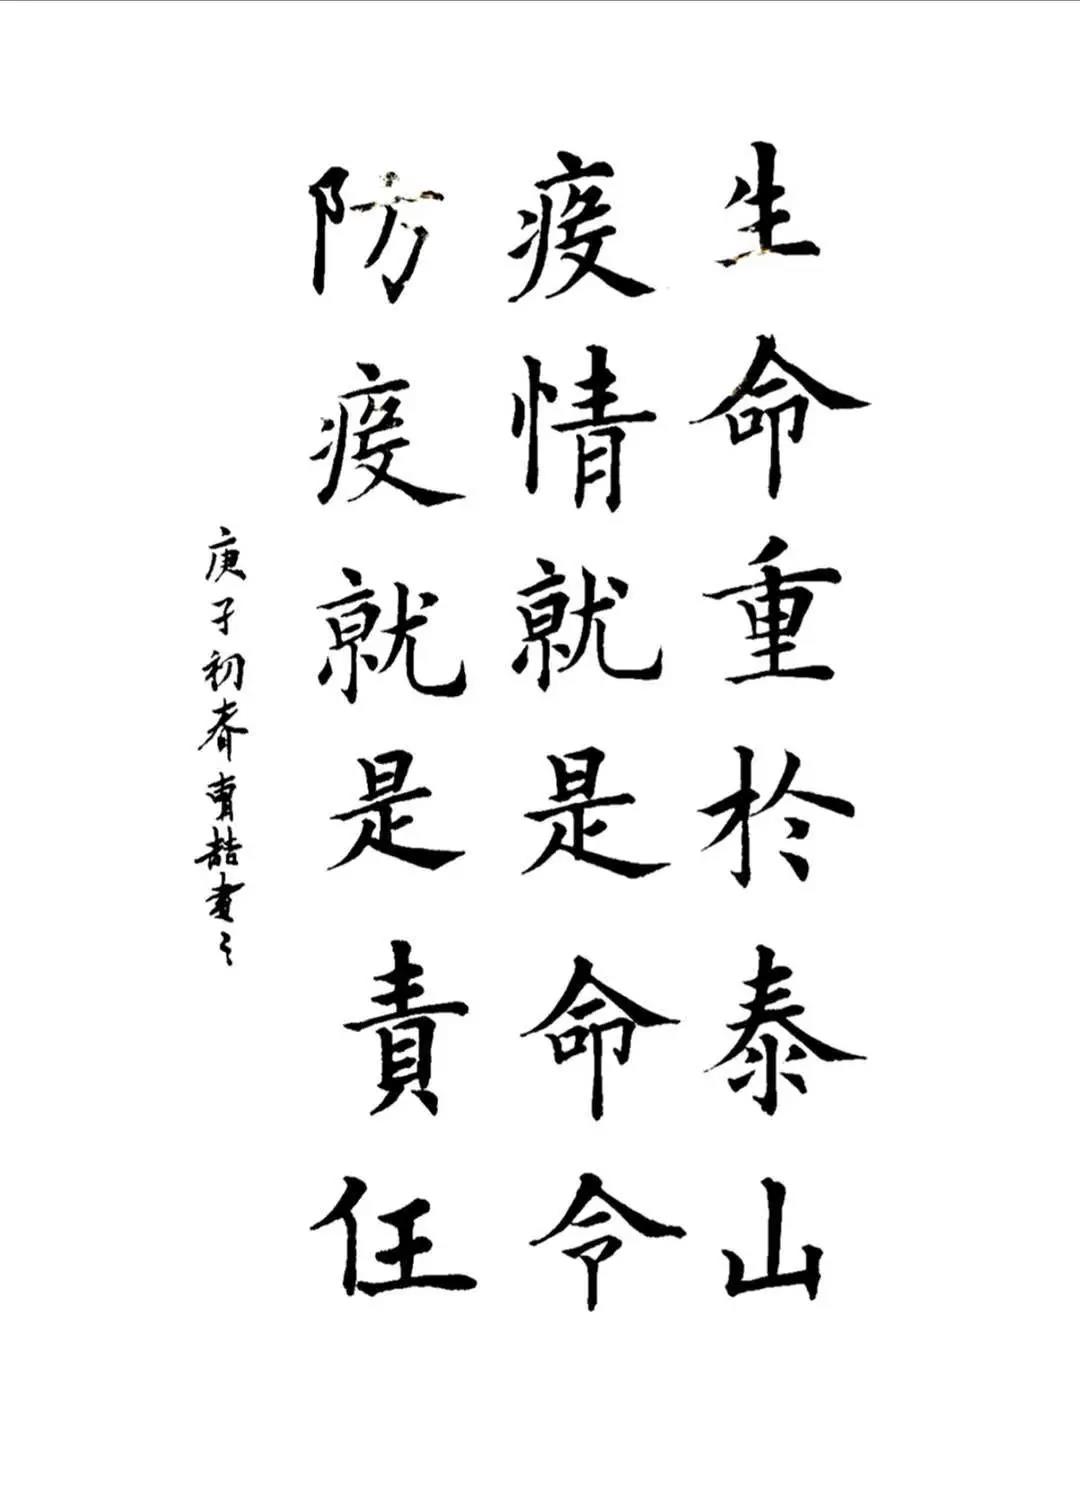 生命重於泰山
疫情就是命令
防疫就是責任
庚子初春曹喆書之